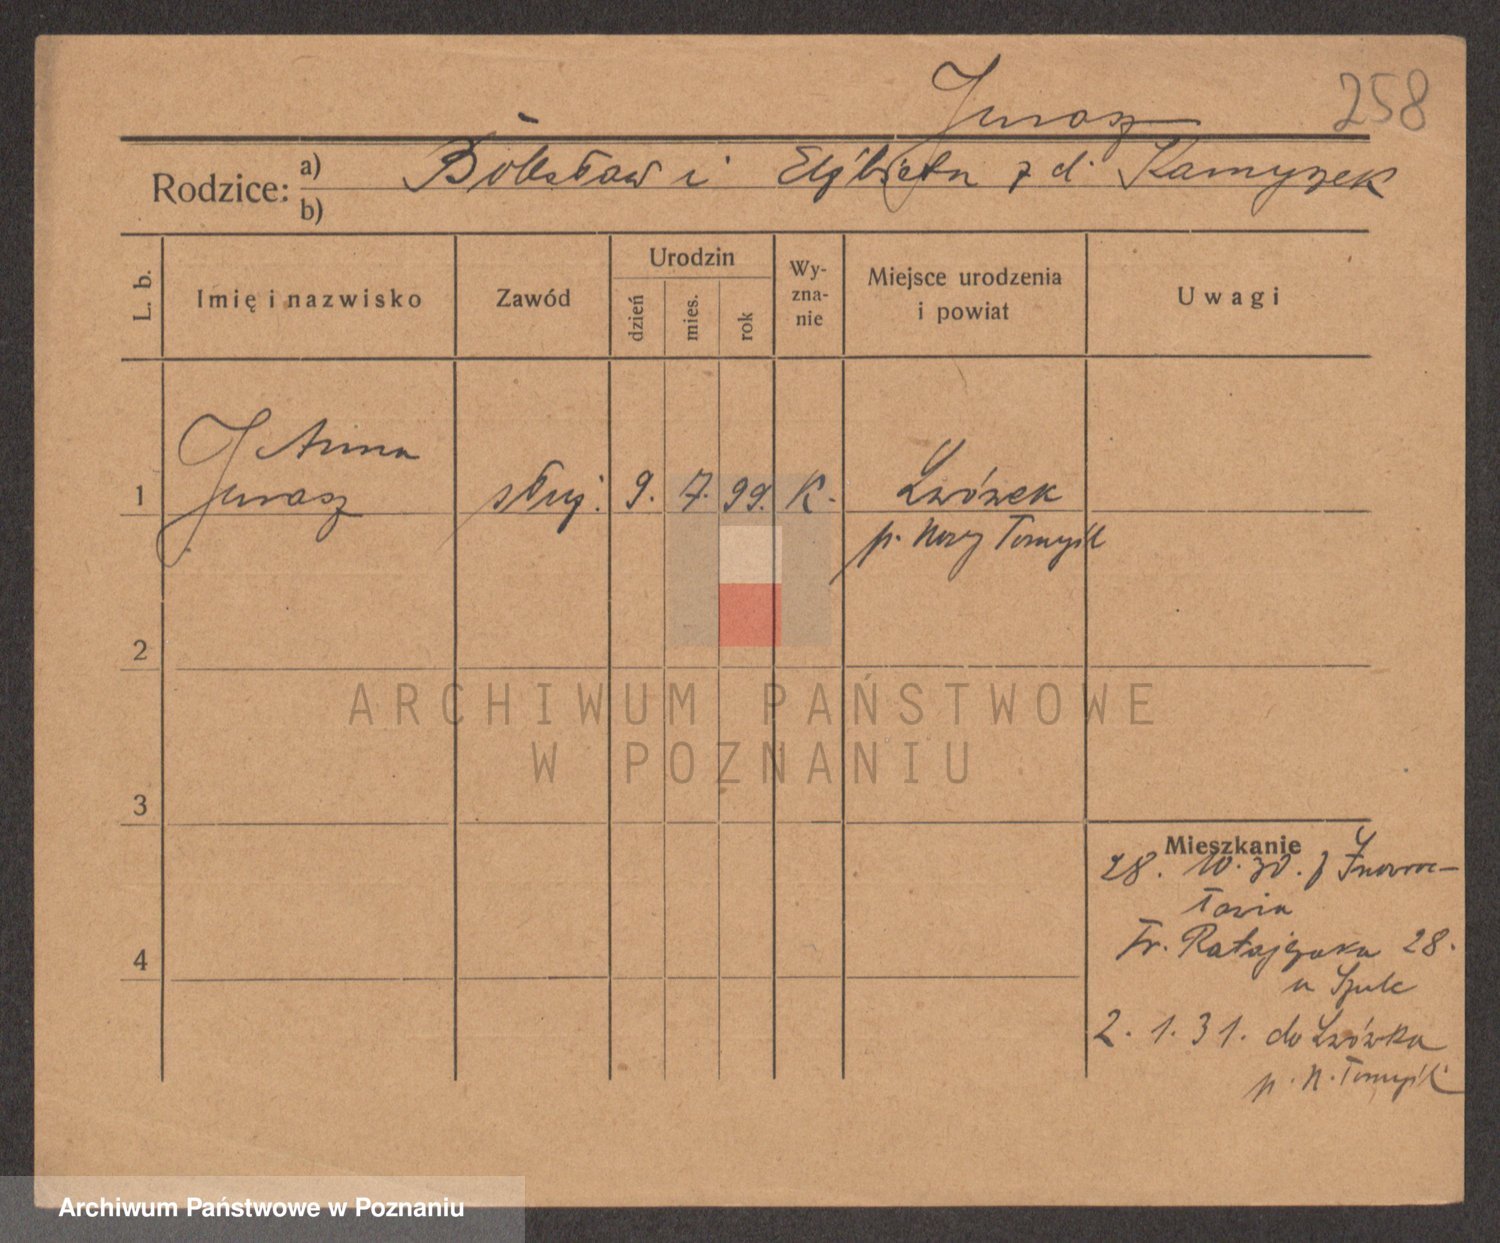 Jurasz
258
Rodzice: a) Bolesław i Elżbieta z d. Kamyszek
b)
L. b.
Imię i nazwisko
Zawód
Urodzin
dzień
mies.
rok
Wy-
zna-
nie
Miejsce urodzenia
i powiat
Uwagi
Anna
1 Jurasz służ. 9. 7. 99. K. Lwówek
p. Nowy Tomyśl
2
ARCHIWUM PAŃSTWOWE
W POZNANIU
3
Mieszkanie
28. 10. 30. z Inowroc-
ławia
Fr. Ratajczaka 28.
u Szulc
4
2. 1. 31. do Lwówka
p. N. Tomyśl
Archiwum Państwowe w Poznaniu